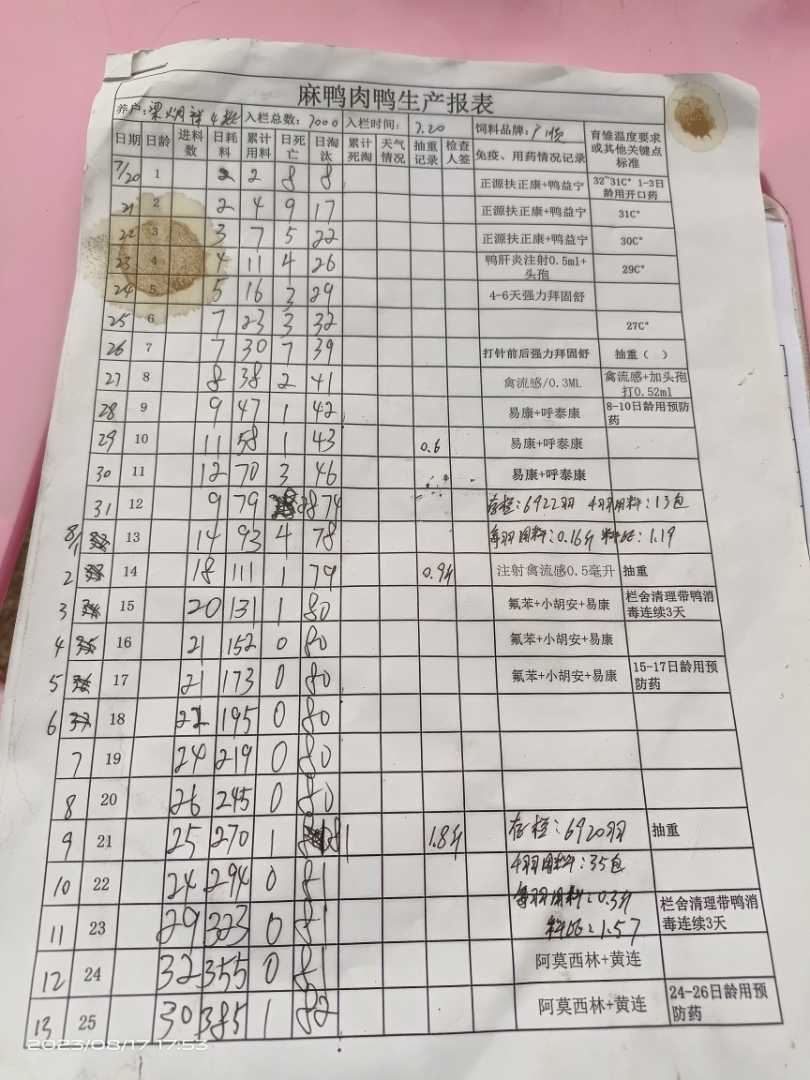 麻鸭肉鸭生产报表
养户: 4批 入栏总数: 7000 入栏时间: 7.20 饲料品牌: 广顺 育雏温度要求或其他关键点标准
日期 日龄 进料数 日耗料 累计用料 日死亡 日淘汰 累计死淘 天气情况 抽重记录 检查人签 免疫、用药情况记录
7/20 1 2 2 8 8 正源扶正康+鸭益宁 32~31C° 1-3日龄用开口药
21 2 2 4 9 17 正源扶正康+鸭益宁 31C°
22 3 3 7 5 22 正源扶正康+鸭益宁 30C°
23 4 4 11 4 26 鸭肝炎注射0.5ml+头孢 29C°
24 5 5 16 3 29 4-6天强力拜固舒
25 6 7 23 3 32 27C°
26 7 7 30 7 39 打针前后强力拜固舒 抽重（ ）
27 8 8 38 2 41 禽流感/0.3ML 禽流感+加头孢打0.52ml
28 9 9 47 1 42 易康+呼泰康 8-10日龄用预防药
29 10 11 58 1 43 0.6 易康+呼泰康
30 11 12 70 3 46 易康+呼泰康
31 12 9 79 28 74 存栏:6922羽 用料:13包
8/1 13 14 93 4 78 每羽用料:0.16斤 料比:1.19
2 14 18 111 1 79 0.9斤 注射禽流感0.5毫升 抽重
3 15 20 131 1 80 氟苯+小胡安+易康 栏舍清理带鸭消毒连续3天
4 16 21 152 0 80 氟苯+小胡安+易康
5 17 21 173 0 80 氟苯+小胡安+易康 15-17日龄用预防药
6 18 22 195 0 80
7 19 24 219 0 80
8 20 26 245 0 80
9 21 25 270 1 81 1.8斤 存栏:6920羽 抽重
10 22 24 294 0 81 用料:35包
每羽用料:0.3斤
11 23 29 323 0 81 料比:1.57 栏舍清理带鸭消毒连续3天
12 24 32 355 0 81 阿莫西林+黄连
13 25 30 385 1 82 阿莫西林+黄连 24-26日龄用预防药
2023/08/17 17:53